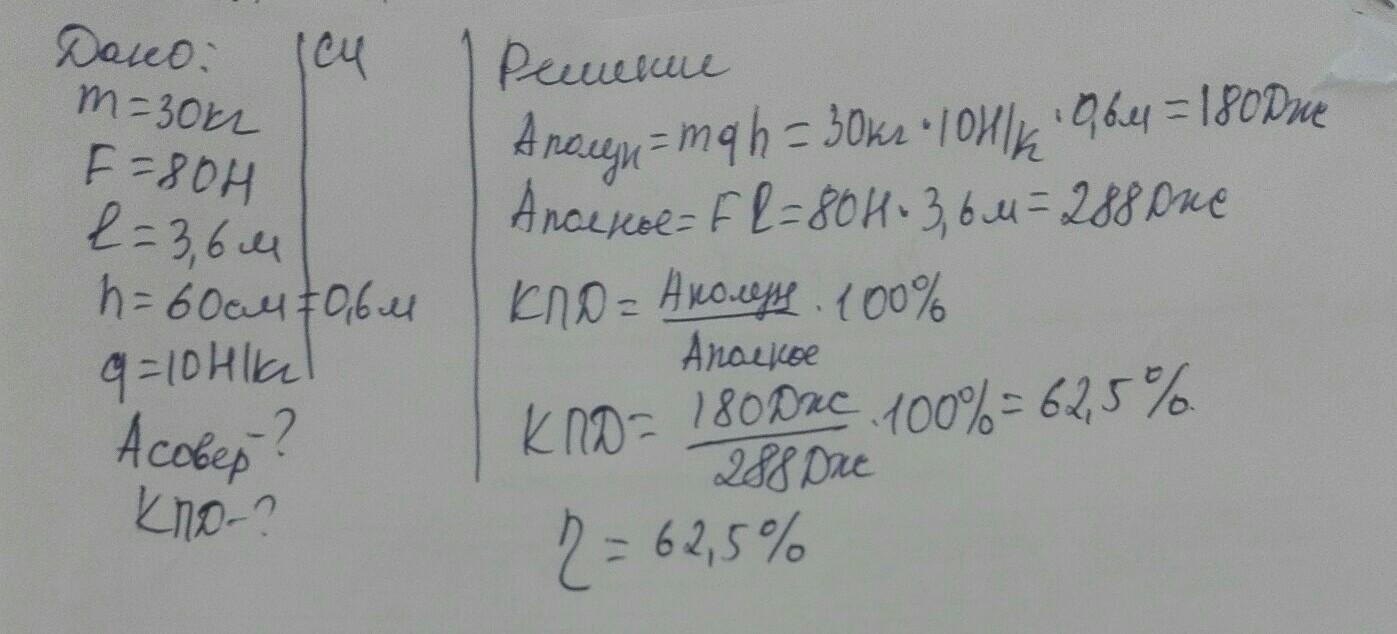 Дано:
m=30кг
F=80Н
ℓ=3,6м
h=60см=0,6м
g=10Н/кг
Асовер-?
КПД-?
СИ
Решение
Аполезн=mgh=30кг·10Н/к·0,6м=180Дж
Аполное=Fℓ=80Н·3,6м=288Дж
КПД=Аполезн/Аполное·100%
КПД=180Дж/288Дж·100%=62,5%.
η=62,5%